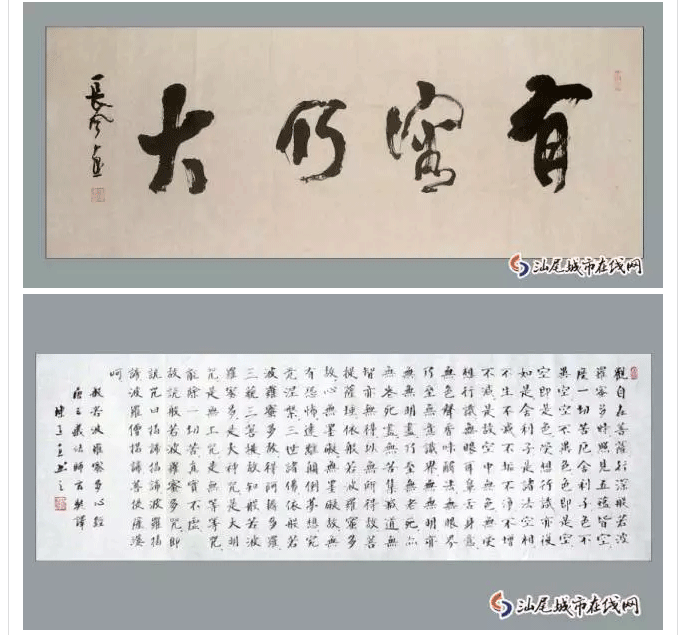 有容乃大
長風
汕尾城市在线网
觀自在菩薩行深般若波
羅蜜多時照見五蘊皆空
度一切苦厄舍利子色不
異空空不異色色即是空
空即是色受想行識亦復
如是舍利子是諸法空相
不生不滅不垢不淨不增
不減是故空中無色無受
想行識無眼耳鼻舌身意
無色聲香味觸法無眼界
乃至無意識界無無明亦
無無明盡乃至無老死亦
無老死盡無苦集滅道無
智亦無得以無所得故菩
提薩埵依般若波羅蜜多
故心無罣礙無罣礙故無
有恐怖遠離顛倒夢想究
竟涅槃三世諸佛依般若
波羅蜜多故得阿耨多羅
三藐三菩提故知般若波
羅蜜多是大神咒是大明
咒是無上咒是無等等咒
能除一切苦真實不虛
故說般若波羅蜜多咒即
說咒曰揭諦揭諦波羅揭
諦波羅僧揭諦菩提薩婆
訶
般若波羅蜜多心經
唐三藏法師玄奘譯
汕尾城市在线网